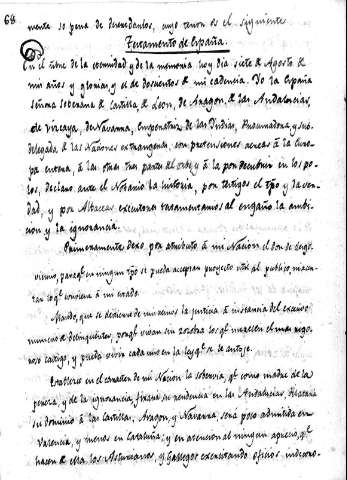 68
menta so pena de deseredarlos, cuyo tenor es el siguiente
Testamento de España.
En el nre de la eternidad y de la memoria hoy dia siete de Agosto de
mis años y glorias, y de descuentos de mi cadencia. Yo la España
señora soberana de Castilla, de Leon, de Aragon, de las Andalucias,
de Vizcaya, de Navarra, Emperatriz de las Indias, Procuradora, y sub-
delegada de las Naciones extrangeras, con pretensiones acreas á la Euro-
pa entera, á las otras tres partes del orbe, y á la por descubrir en los po-
los, declaro ante el Notario la historia, por testigos el tpo y la ver-
dad, y por Albaceas executores testamentarios al engaño, la ambi-
cion y la ignorancia.
Primeramente dexo por atributo á mi Nacion el don de
viernio, para qe en ningun tpo se pueda acceptar proyecto util al publico,
tar lo qe conviene á mi estado.
Mando, que se destierre de mis reinos la justicia á instancia del excesivo
numero de delinquentes, porqe vivan sin zozobra los qe merecen el mas rigo-
roso castigo, y pueda vivir cada uno en la ley qe se le antoje.
Establezco en el caracter de mi Nacion la soberbia, qe como madre de la
pereza, y de la ignorancia, fixará su residencia en las Andalucias,
su dominio á las Castillas, Aragon, y Navarra, será poco admitida en
Valencia, y menos en Cataluña; y en atencion al ningun aprecio, qe
hacen de ella los Asturianos, y Gallegos exercitando oficios indecoro-